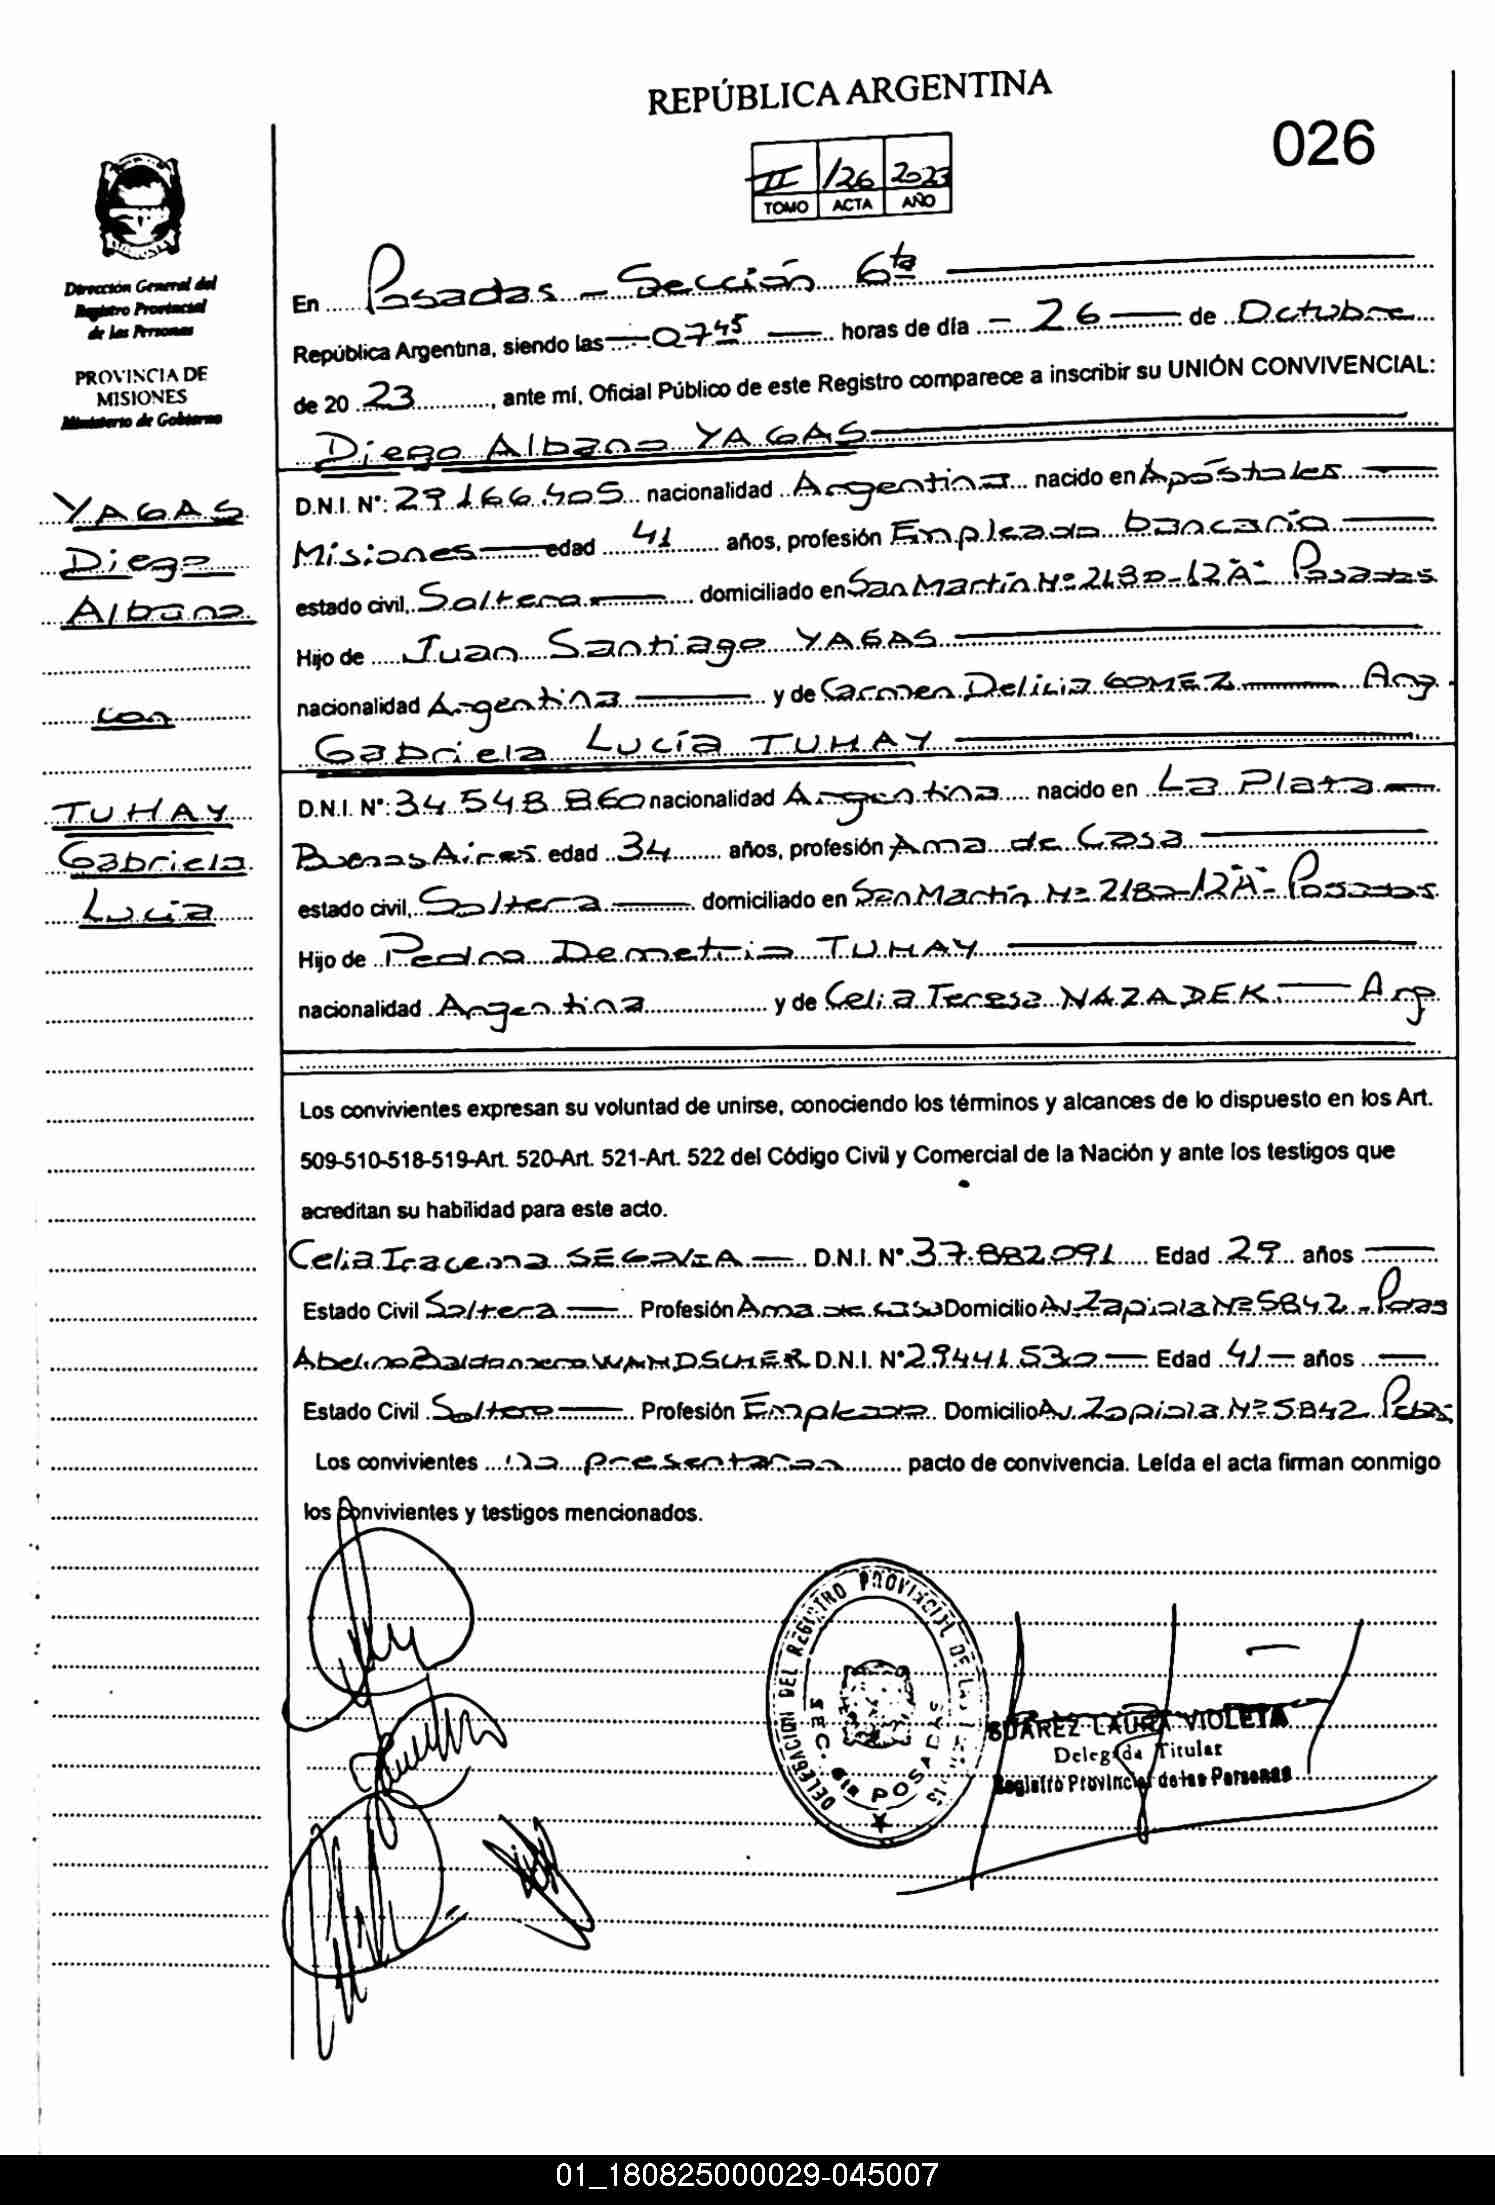 REPÚBLICA ARGENTINA
026
II 126 2023
TOMO ACTA AÑO
Dirección General del
Registro Provincial
de las Personas
PROVINCIA DE
MISIONES
Ministerio de Gobierno
YAGAS
Diego
Albano
con
TUHAY
Gabriela
Lucía
En Posadas - Sección 6ta
República Argentina, siendo las 07 45 horas de día - 26 de Octubre
de 20 23, ante mí, Oficial Público de este Registro comparece a inscribir su UNIÓN CONVIVENCIAL:
Diego Albano YAGAS
D.N.I. N°: 29.166.405 nacionalidad Argentina nacido en Apóstoles
Misiones edad 41 años, profesión Empleado bancario
estado civil, Soltero domiciliado en San Martín Nº 2180-12"A"- Posadas
Hijo de Juan Santiago YAGAS
nacionalidad Argentina y de Carmen Delicia GOMEZ Arg.
Gabriela Lucía TUHAY
D.N.I. N°: 34.548.860 nacionalidad Argentina nacido en La Plata
Buenos Aires edad 34 años, profesión Ama de Casa
estado civil, Soltera domiciliado en San Martín Nº 2180-12"A"- Posadas
Hijo de Pedro Demetrio TUHAY
nacionalidad Argentina y de Celia Teresa NAZADEK Arg.
Los convivientes expresan su voluntad de unirse, conociendo los términos y alcances de lo dispuesto en los Art.
509-510-518-519-Art. 520-Art. 521-Art. 522 del Código Civil y Comercial de la Nación y ante los testigos que
acreditan su habilidad para este acto.
Celia Iracema SEGOVIA D.N.I. N° 37.882.091 Edad 29 años
Estado Civil Soltera Profesión Ama de casa Domicilio Av. Zapiola Nº 5842 - Pdas
Abelino Baldomero WANDSCHER D.N.I. N° 29441530 Edad 41 años
Estado Civil Soltero Profesión Empleado Domicilio Av. Zapiola Nº 5842 Pdas
Los convivientes no presentaron pacto de convivencia. Leída el acta firman conmigo
los convivientes y testigos mencionados.
DELEGACION DEL REGISTRO PROVINCIAL DE LAS PERSONAS
SEC. 6ta POSADAS
SUAREZ LAURA VIOLETA
Delegada Titular
Registro Provincial de las Personas
01_180825000029-045007